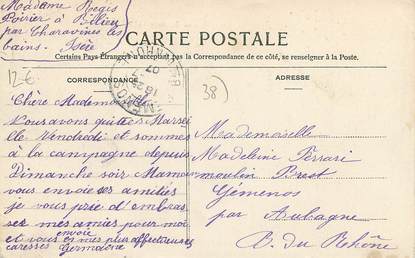 Madame Regis
Poirier à Bilieu
par Charavines les
bains. Isère
CARTE POSTALE
Certains Pays Étrangers n'acceptant pas la Correspondance de ce côté, se renseigner à la Poste.
12 €
CORRESPONDANCE
Chère Mademoiselle
Nous avons quittés Marsei
lle Vendredi et sommes
à la campagne depuis
Dimanche soir Maman
vous envoie ses amitiés
je vous prie d'embras
ser mes amies pour moi
et vous envoie mes plus affectueuses
caresses Germaine
38)
ADRESSE
Mademoiselle
Madeleine Ferrari
moulin Brest
Gémenos
par Aubagne
B. du Rhône